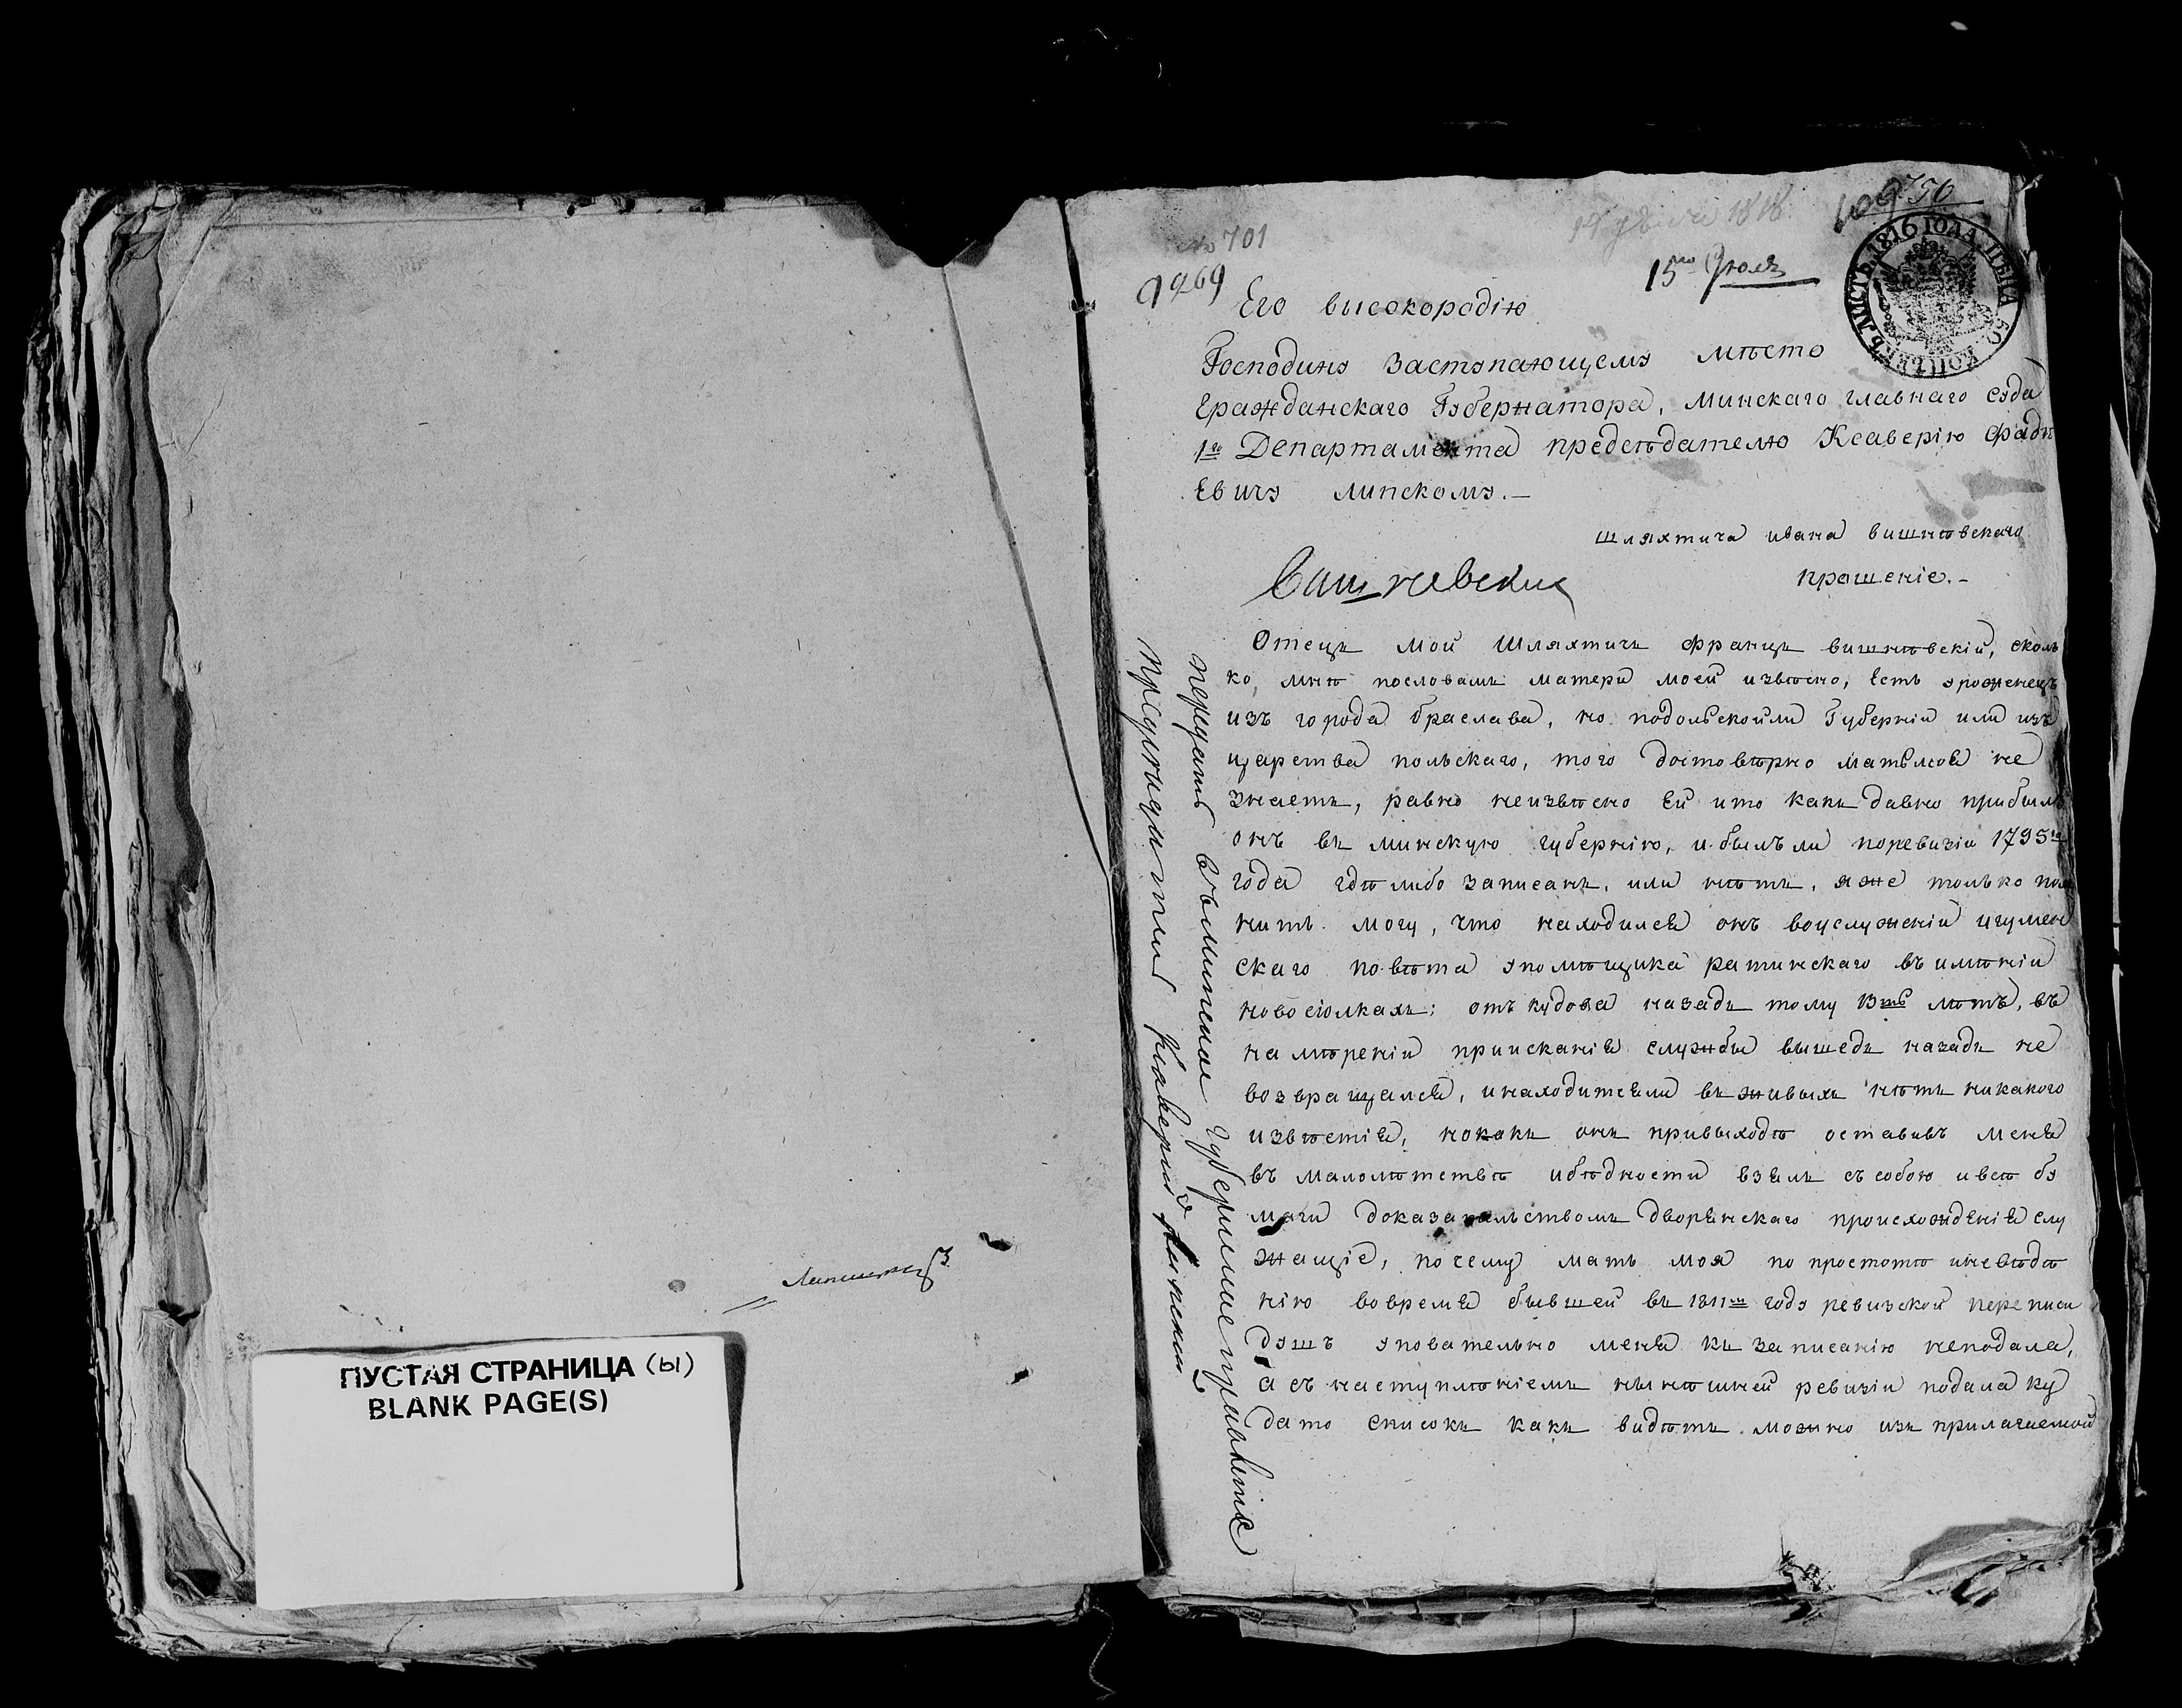 Лапицкаго
ПУСТАЯ СТРАНИЦА (Ы)
BLANK PAGE(S)
№ 701
1269
750
15го Июля
ЛИСТЪ 1816 ГОДА ЦѢНА 50 КОПѢЕКЪ
Его высокородію
Господину Заступающему мѣсто
Гражданскаго Губернатора, минскаго главнаго суда
1го Департамента предсѣдателю Ксаверію Фадѣ
Евичу липскому.—
шляхтича ивана вишнѣвскаго
прошеніе.—
Отецъ мой Шляхтичъ францъ вишнѣвскій, сколь
ко, мнѣ пословамъ матери моей извѣсно, Есть уроженецъ
изъ города браслава, но подольскойли Губерніи или изъ
царства польскаго, того достовѣрно матьмоя не
знаетъ, равно неизвѣсно Ей ито какъ давно прибылъ
онъ въ минскую губернію, и былъ ли поревизіи 1795го
года гдѣ либо записанъ, или нѣтъ, яже только пом
нить могу, что находился онъ воуслуженіи игумен
скаго повѣта упомѣщика ратинскаго въ имѣніи
новосіолкахъ; отъ кудова назадъ тому 13ть лѣтъ, въ
намѣреніи пріисканія службы вышедъ назадъ не
возвращался, инаходитсяли въ живыхъ нѣтъ никакого
извѣстія, нокакъ онъ привыходѣ оставивъ меня
въ малолѣтствѣ ибѣдности взялъ съ собою ивсѣ бу
маги доказательствомъ дворянскаго происхожденія слу
жащіе, почему мать моя по простотѣ иневѣдѣ
нію вовремя бывшей въ 1811мъ году ревизской переписи
душъ уповательно меня къ записанію неподала,
а съ наступлѣніемъ нынѣшней ревизіи подала ку
дато списокъ какъ видѣть можно изъ прилагаемой
передать въ минское губернское правленіе
Ксаверій Липскій